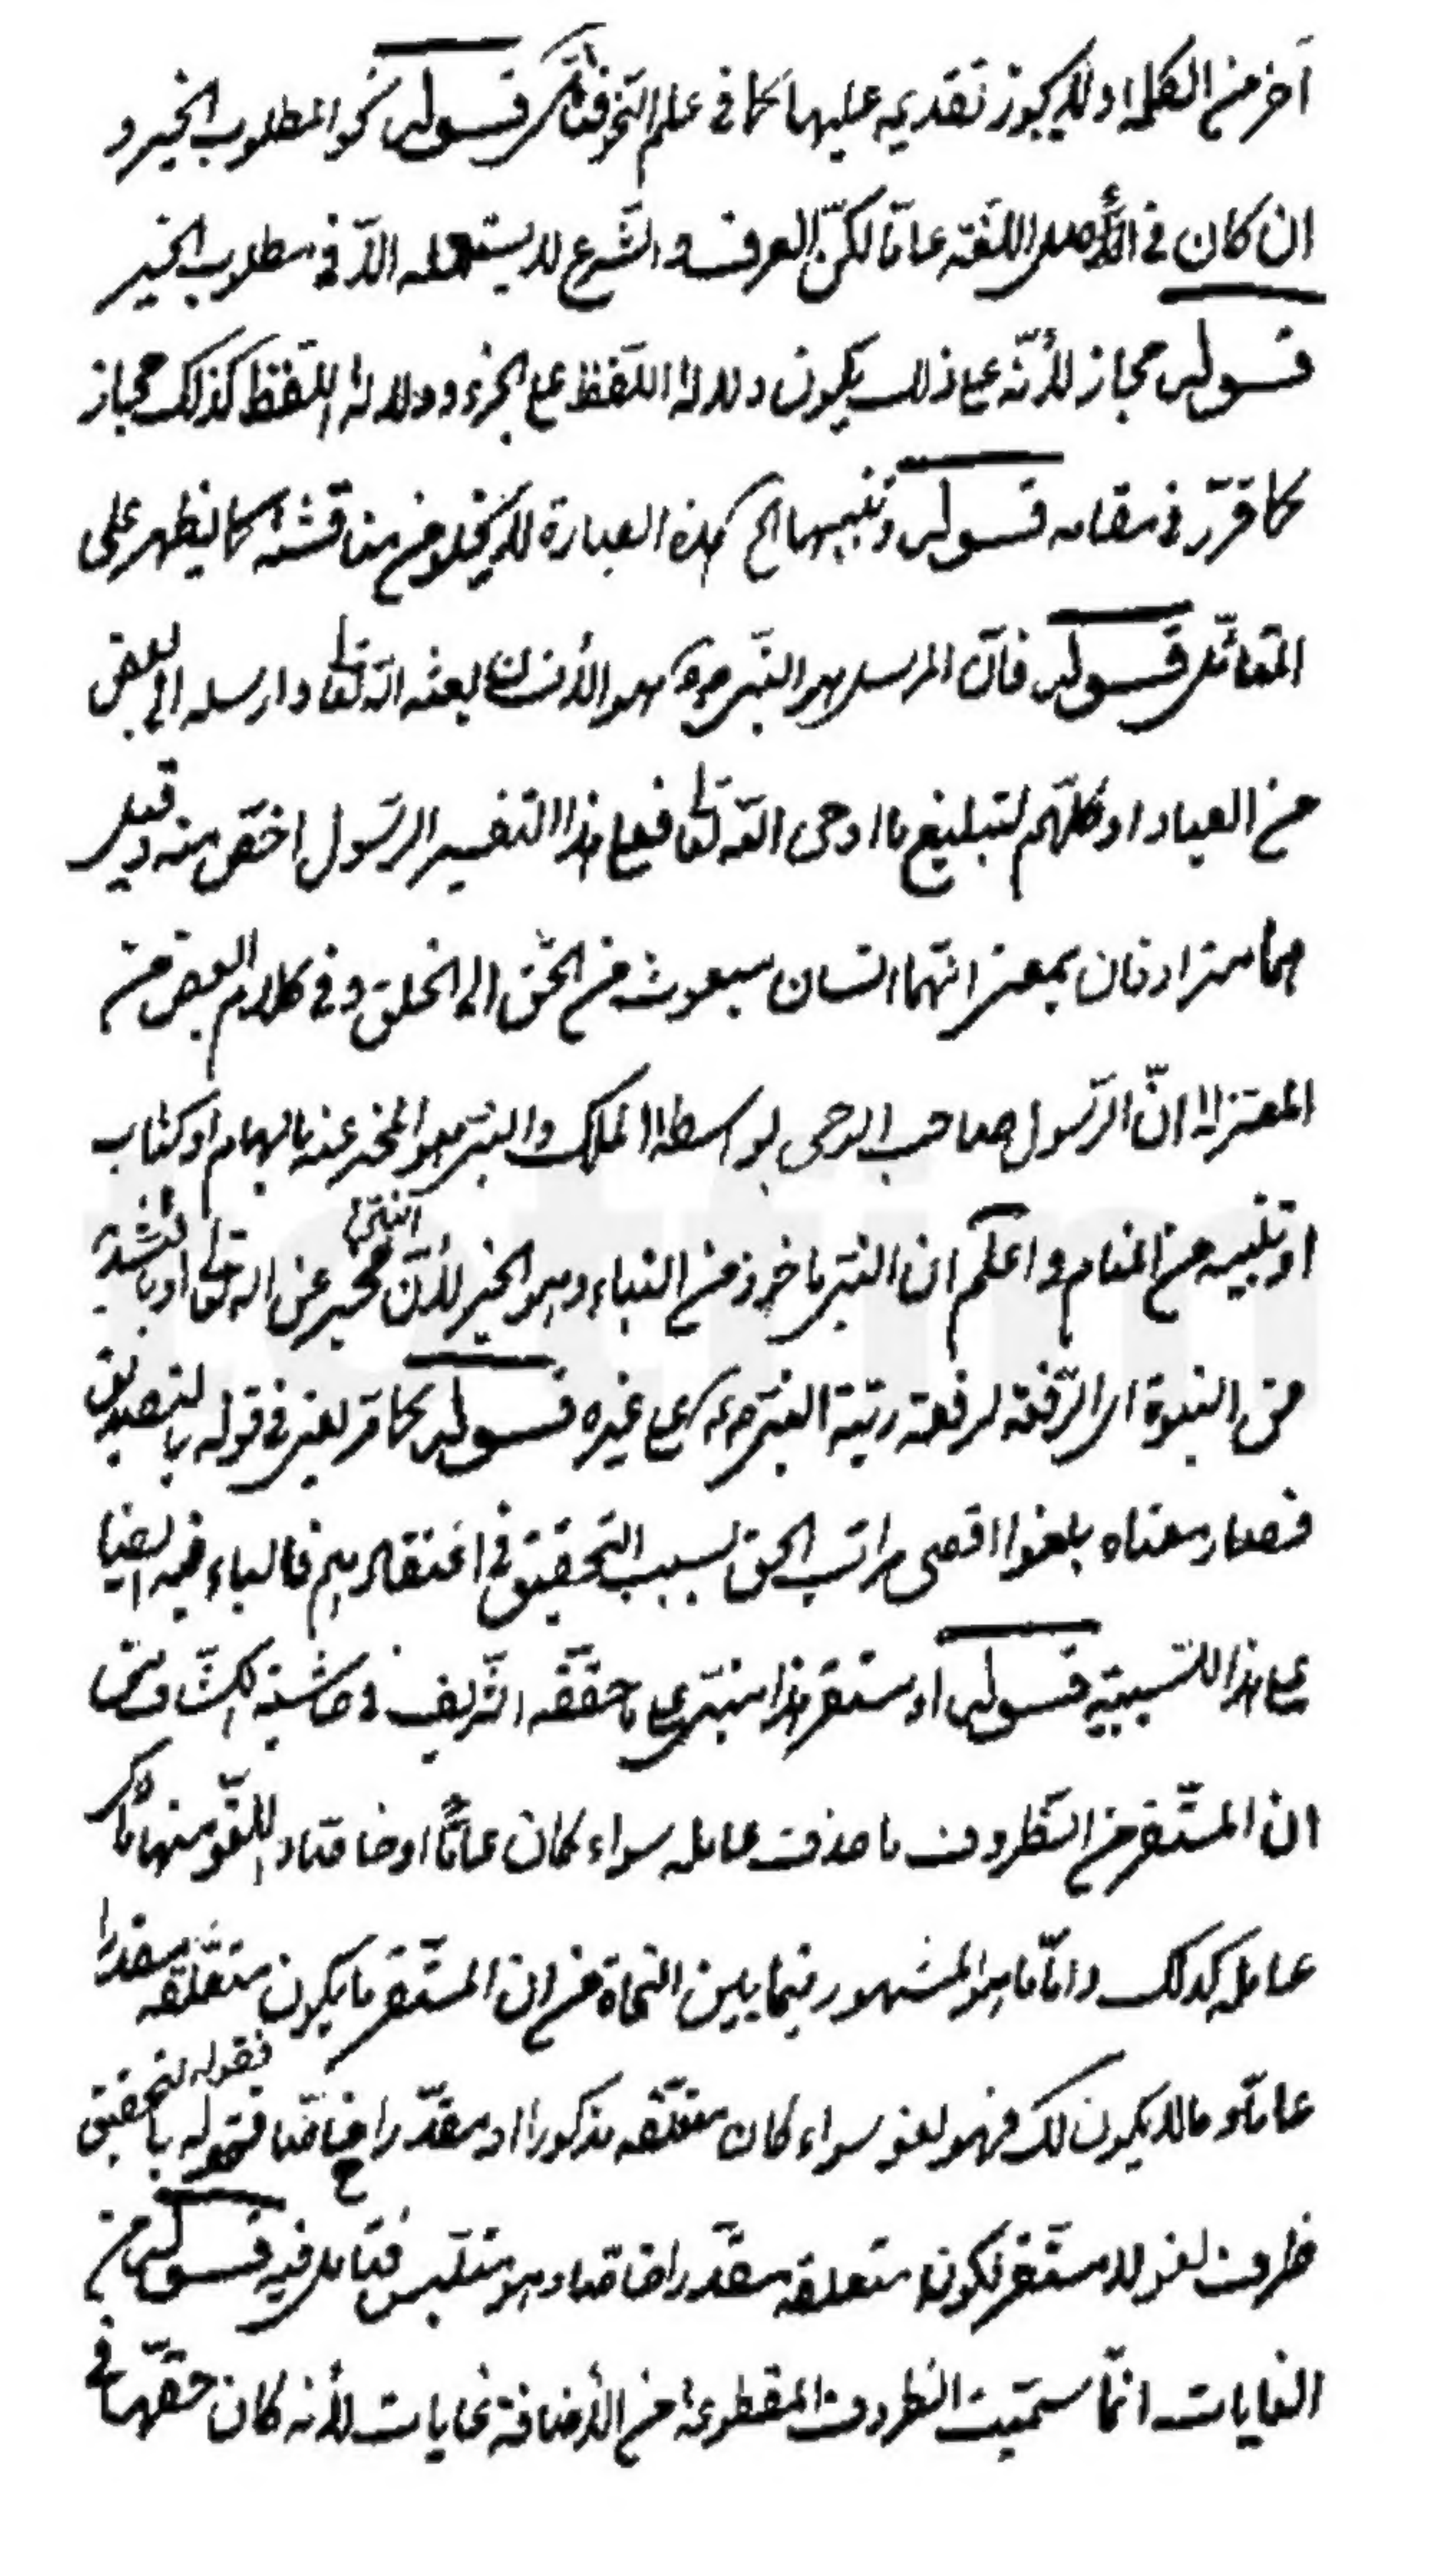 آخر من الكلمة او لا يجوز تقديمه عليها كما في علم النحو فتأمل قوله نحو المطلوب الخير و
ان كان في الأصل اللغة عامّا لكنّ العرف والشرع لا يستعمله الاّ في مطلوب الخير
قوله مجاز لأنّه على ذلك يكون دلالة اللفظ على الجزء ودلالة اللفظ كذلك مجاز
كما قرّر في مقامه قوله وتنبيها الخ هذه العبارة لا يخلو من مناقشة كما يظهر على
المتأمّل قوله فانّ المرسل هو النبي هو الأنسان بعثه الله تعالى وارسله الى بعض
من العباد او كلّهم لتبليغ ما اوحى الله تعالى فعلى هذا التفسير الرّسول اخصّ منه وقيل
هما مترادفان بمعنى انّهما انسان مبعوث من الحقّ الى الخلق وفي كلام البعض من
المعتزلة انّ الرّسول صاحب الوحى بواسطة الملك والنبي هو المخبر عنه بالهام او كتاب
او تنبيه من المنام واعلم ان النبي ماخوذ من النباء وهو الخبر لأنّ النبي مخبر عن الله تعالى او بالتشديد
من النبوة اى الرّفعة لرفعة رتبة النبي على غيره قوله كما مرّ يعنى في قوله بالتصديق
فصار معناه بلغوا اقصى مراتب الحق بسبب التحقيق في اعتقادهم فالباء فيه ايضا
على هذا للسّببيّة قوله او مستقر هذا مبنى على ما حقّقه الشّريف في حاشية الكشّاف من
ان المستقر من الظروف ما حذف عامله سواء كان عامّا او خاصّا واللغو منها ما ذكر
عامله كذلك وامّا ما هو المشهور فيما بين النحاة من ان المستقر ما يكون متعلّقه مقدرا
عامّا وما لا يكون كذلك فهو لغو سواء كان متعلّقه مذكورا او مقدّرا خاصّا فقوله بالتحقيق
ظرف لغو لا مستقر لكون متعلقه مقدّرا خاصّا وهو متلبس فتأمل فيه قوله من
الغايات انّما سمّيت الظروف المقطوعة من الأضافة غايات لأنه كان حقّها في